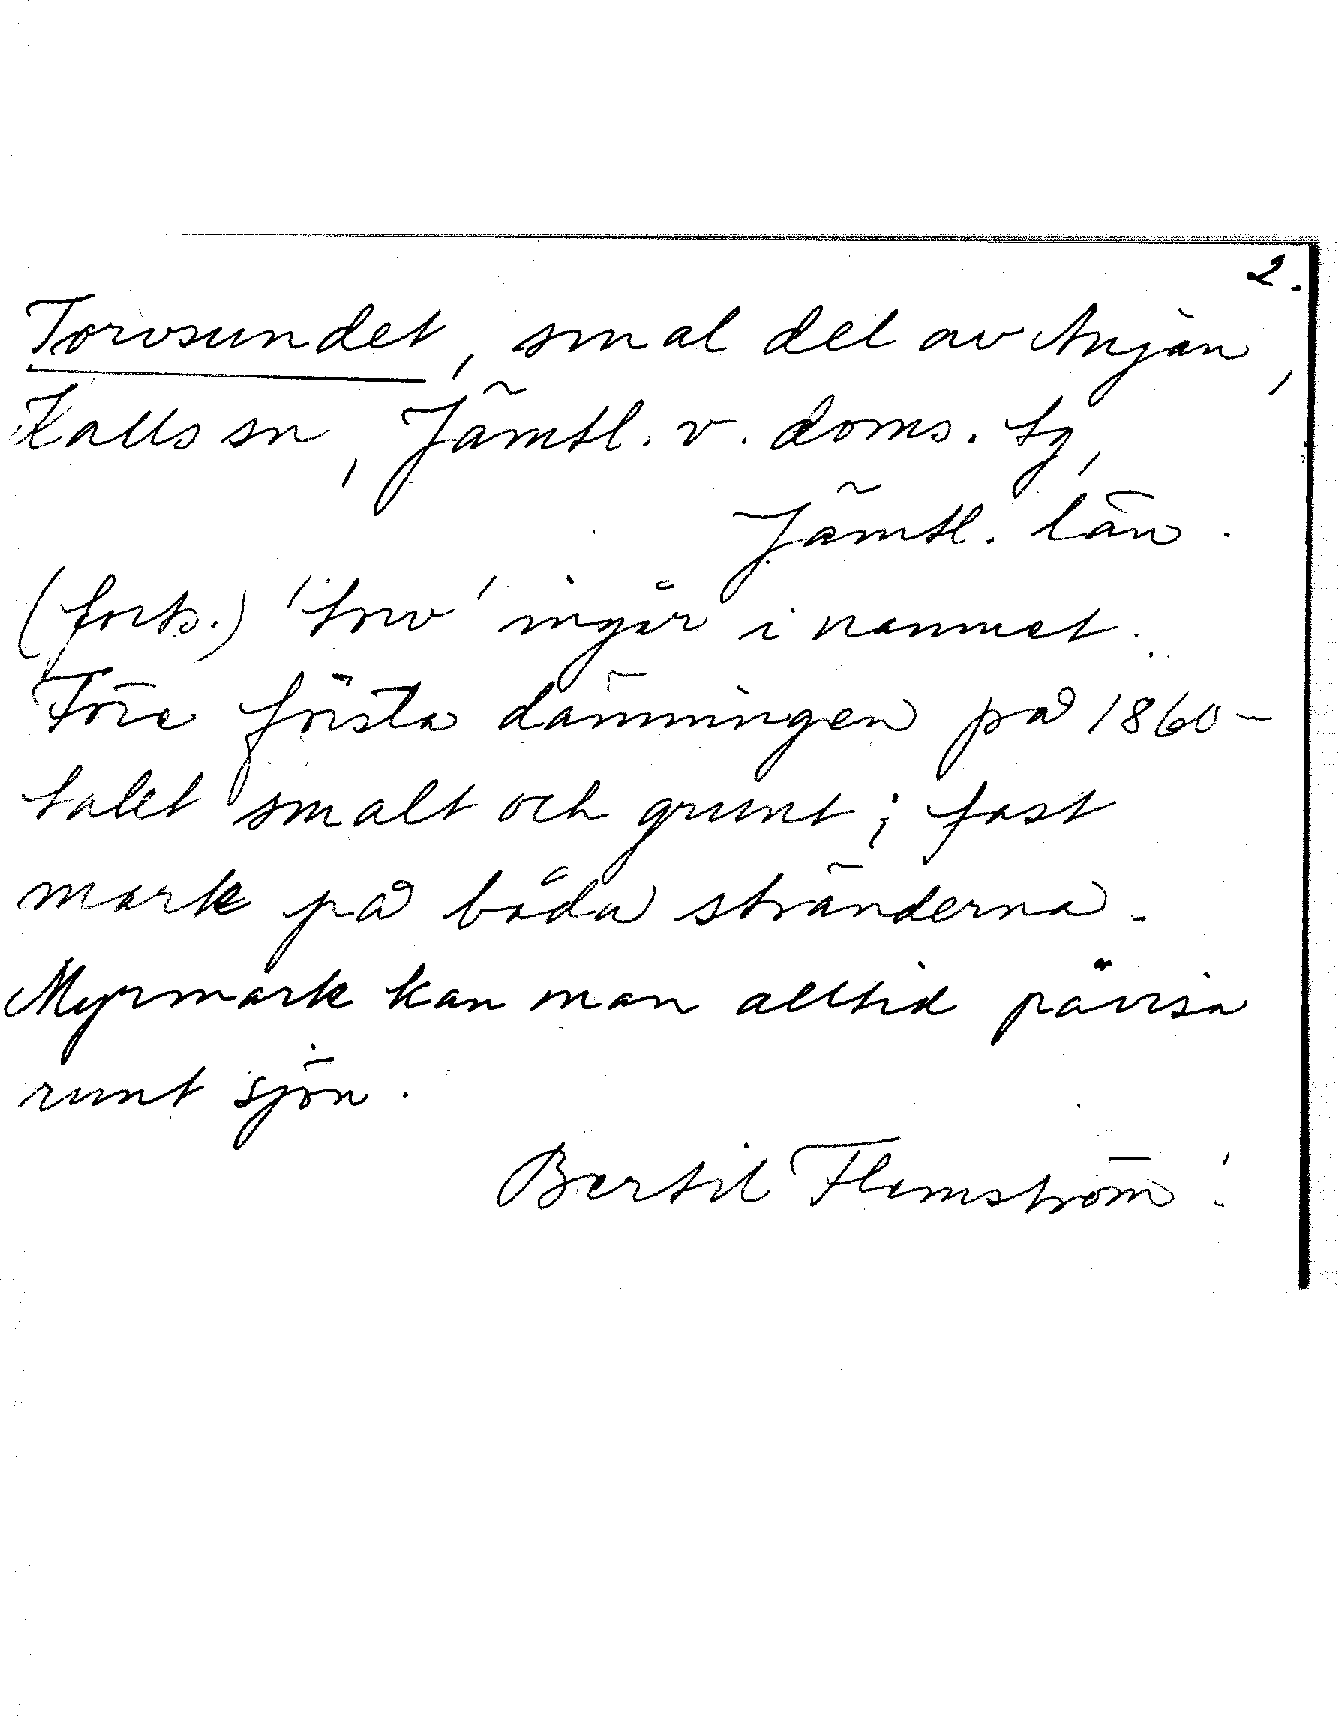 2.
Torvsundet, smal del av Anjan,
Kalls sn, Jämtl. v. doms. tg,
Jämtl. län.
(forts.) 'torv' ingår i namnet.
Före första dämningen på 1860-
talet smalt och grunt; fast
mark på båda stränderna.
Myrmark kan man alltid påvisa
runt sjön.
Bertil Flemström!